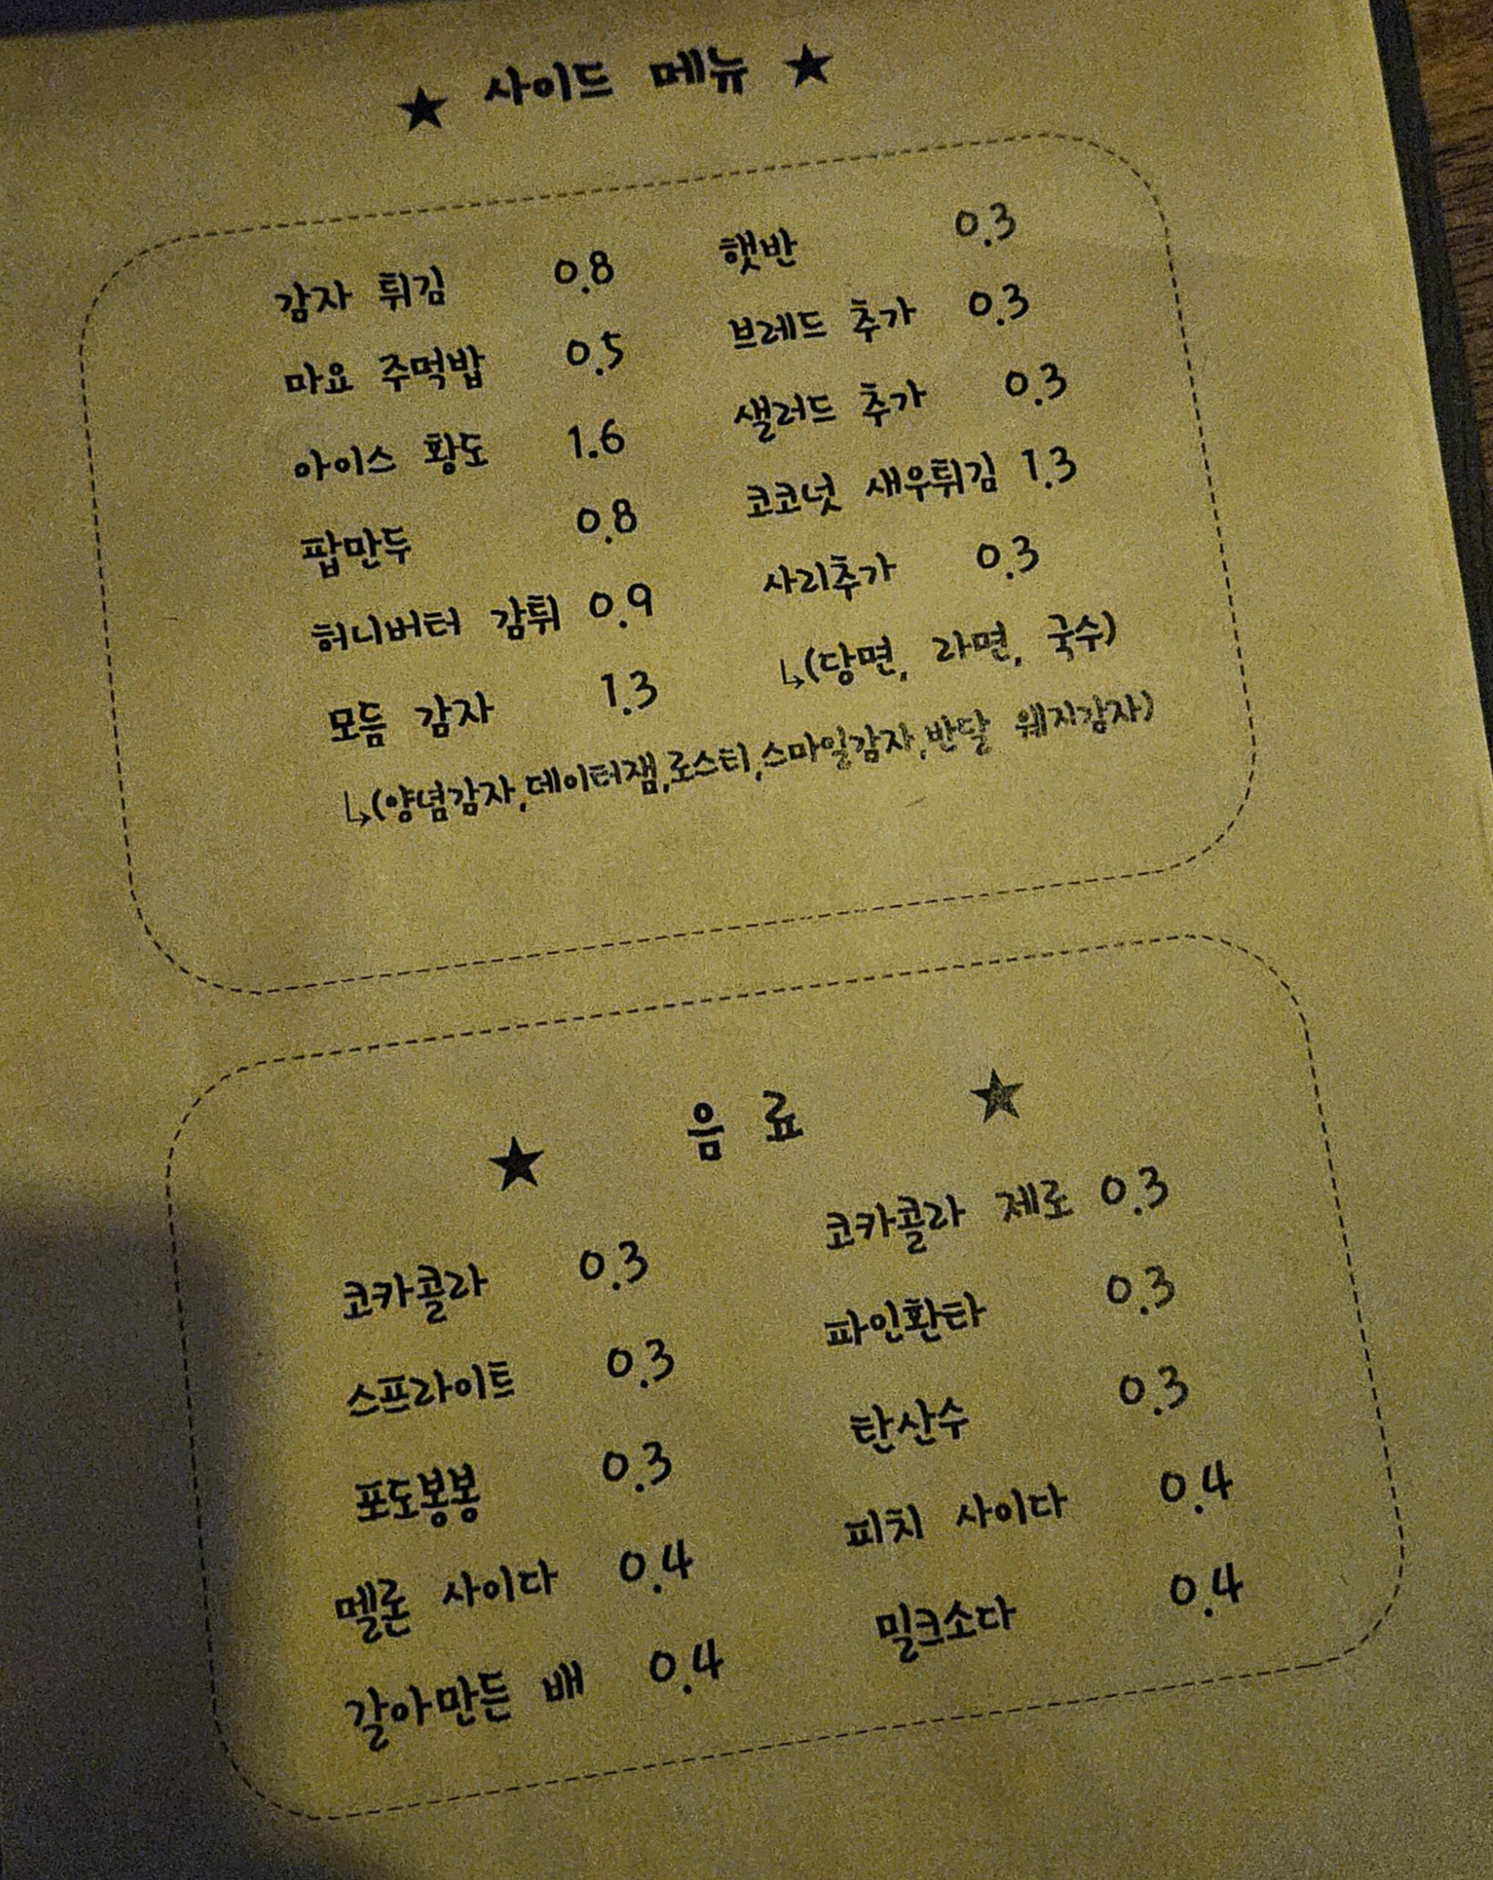 ★ 사이드 메뉴 ★
감자 튀김 0.8
마요 주먹밥 0.5
아이스 황도 1.6
팝만두 0.8
허니버터 감튀 0.9
모듬 감자 1.3
↳(양념감자,데이터잼,로스티,스마일감자,반달 웨지감자)
햇반 0.3
브레드 추가 0.3
샐러드 추가 0.3
코코넛 새우튀김 1.3
사리추가 0.3
↳(당면, 라면, 국수)
★ 음료 ★
코카콜라 0.3
스프라이트 0.3
포도봉봉 0.3
멜론 사이다 0.4
갈아만든 배 0.4
코카콜라 제로 0.3
파인환타 0.3
탄산수 0.3
피치 사이다 0.4
밀크소다 0.4